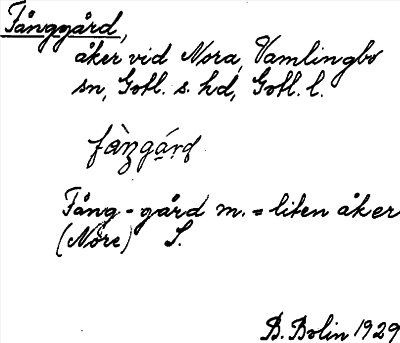 Fånggård,
åker vid Nora, Vamlingbo
sn, Gotl. s. hd, Gotl. l.
fàŋgárd
Fång-gård m. = liten åker
(Nore) S.
B. Bolin 1929